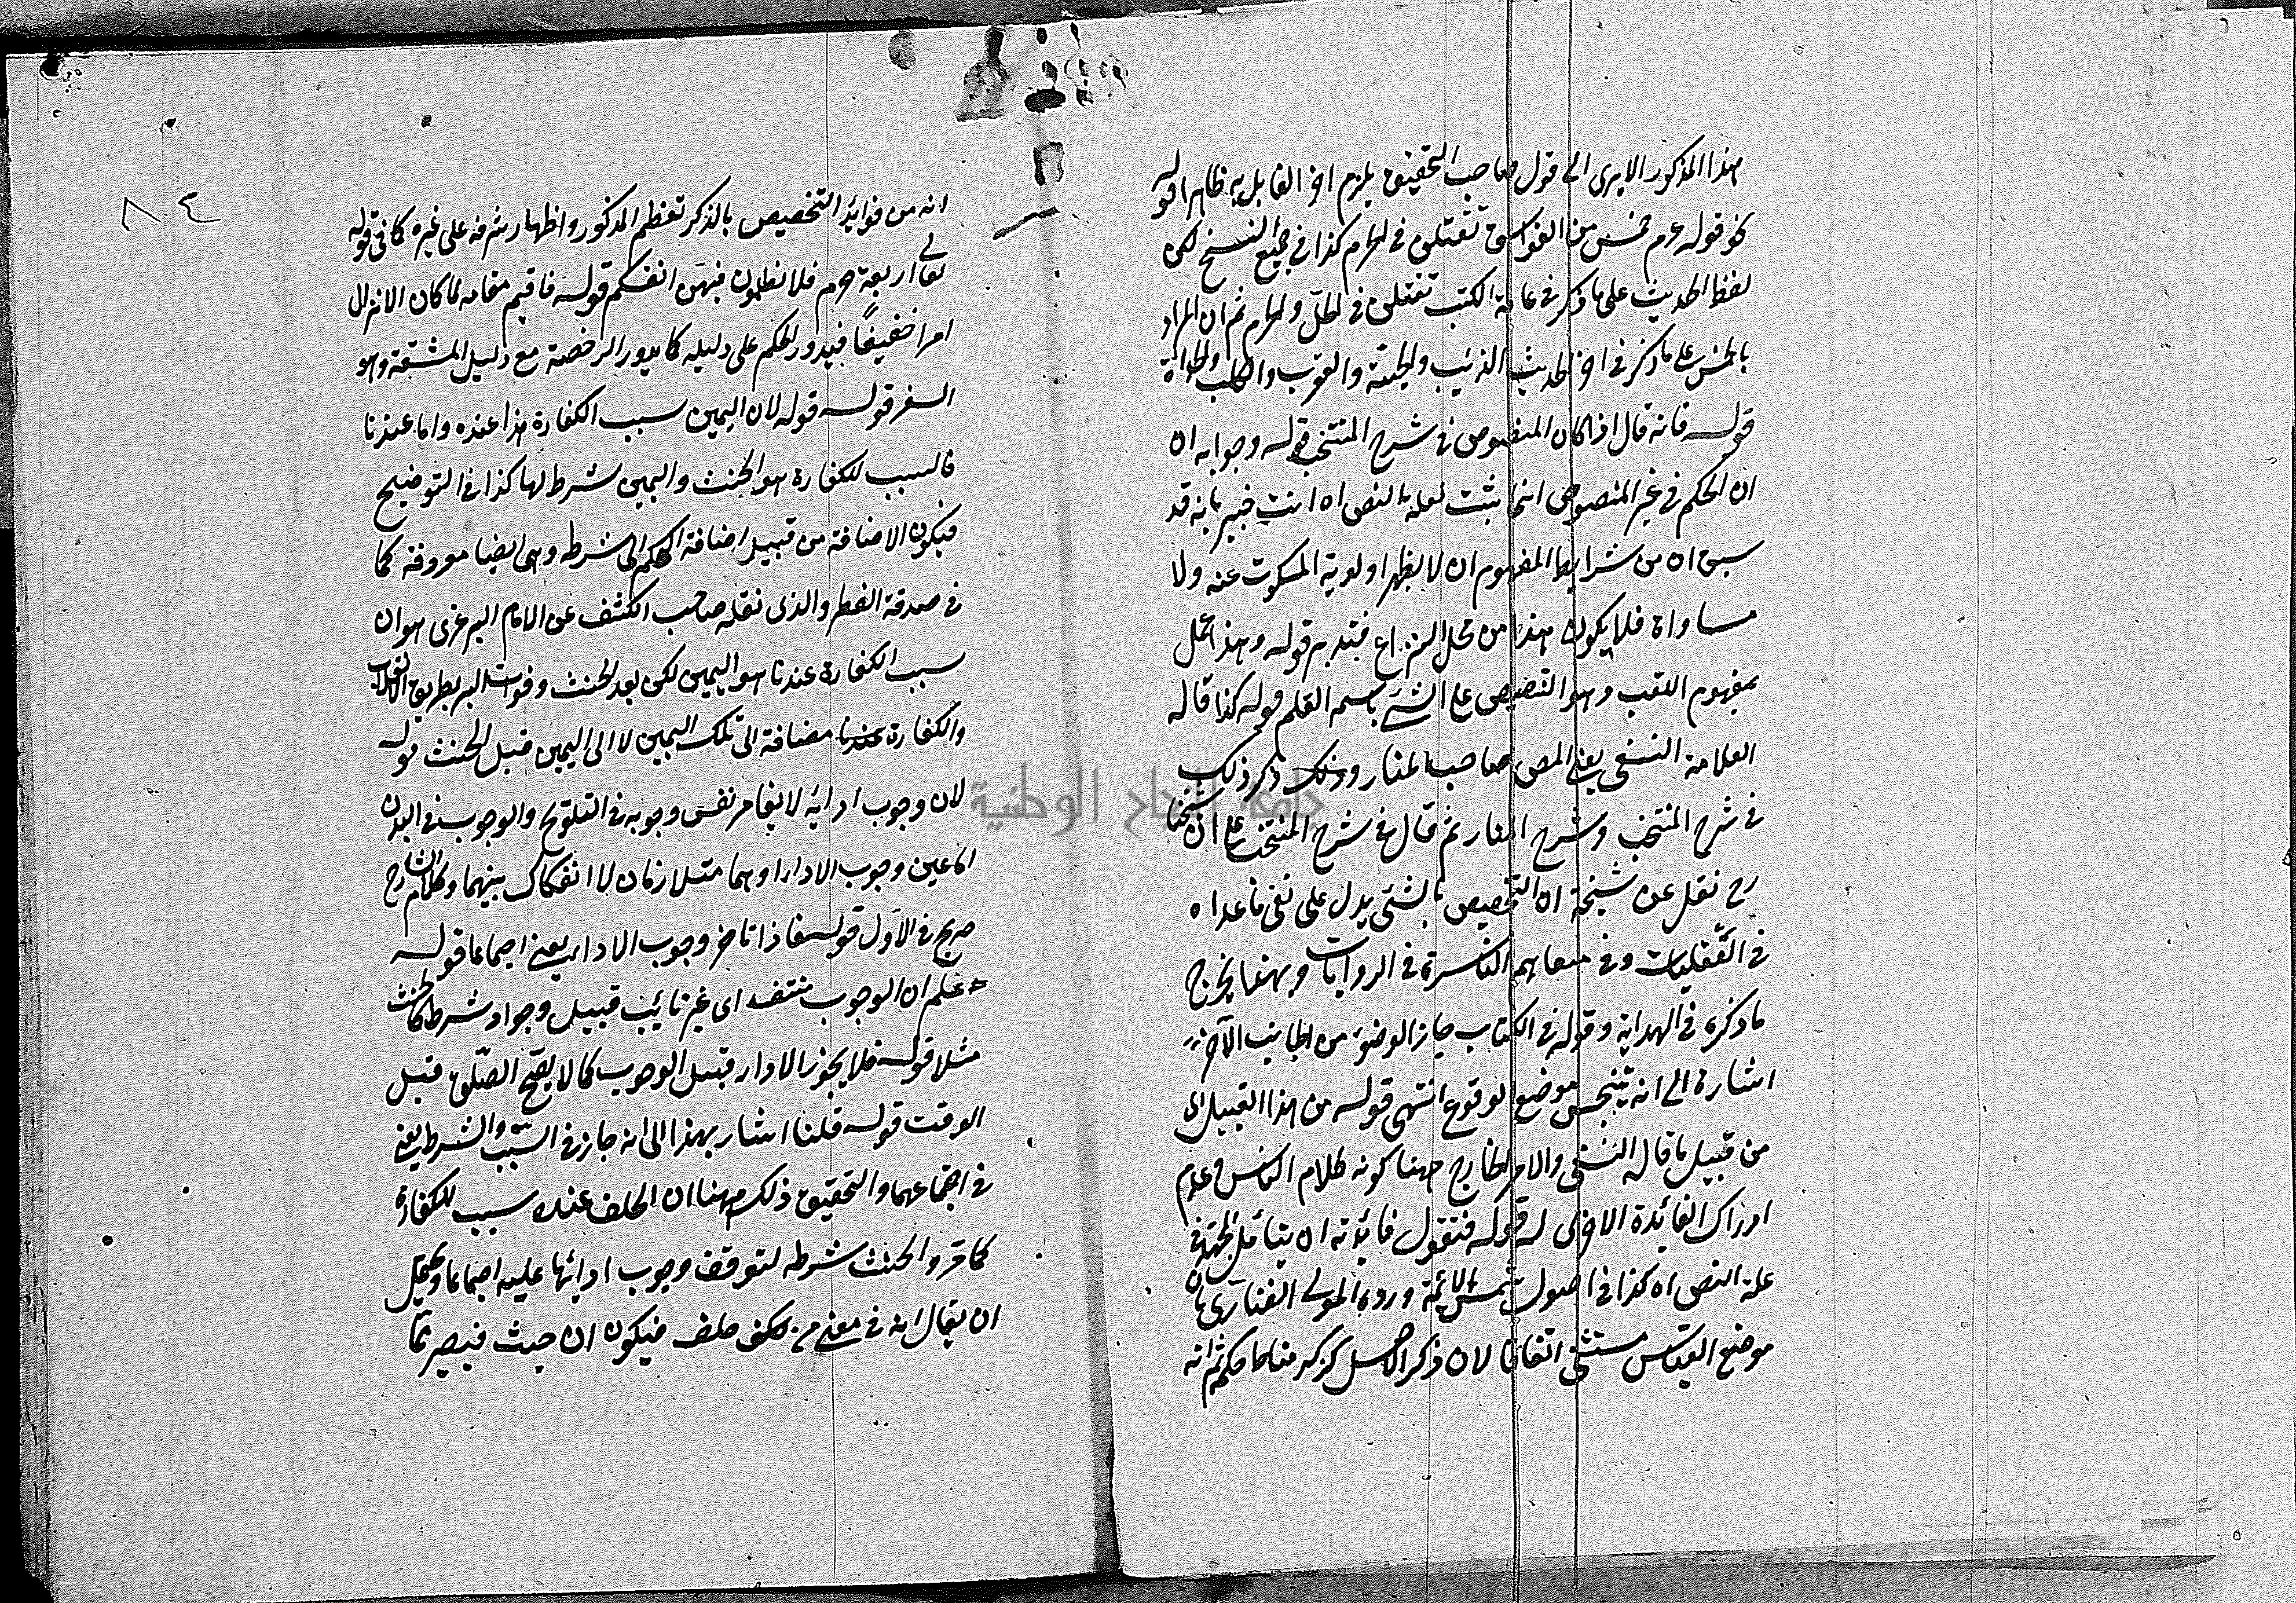 هذا المذكور الا يرى الى قول صاحب التحقيق يلزم القابل به ظاهرا قوله
نحو قوله عم خمس من الفواسق تقتلن في الحرم كذا في جميع النسخ لكن
لفظ الحديث على ما ذكر في عامة الكتب تقتلن في الحل والحرم ثم ان المراد
بالخمس على ما ذكر في اخر الحديث الذئب والحية والعقرب والكلب والحداة
قوله فانه قال اذا كان المنصوص في شرح المنتخب قوله وجوابه ان
ان الحكم في غير المنصوص انما يثبت لعلة النص اه انت خبير بانه قد
سبق ان من شرايط المفهوم ان لا يظهر اولوية المسكوت عنه ولا
مساواة فلا يكون هذا من محل النزاع فتدبر قوله وهذا عمل
بمفهوم اللقب وهو التنصيص على الشئ باسمه العلم قوله كذا قاله
العلامة النسفي يعني المص صاحب المنار وذلك ذكر ذلك
في شرح المنتخب وشرح المنار ثم قال في شرح المنتخب على ان شيخنا
رح نقل عن شيخه ان التخصيص بالشئ يدل على نفي ما عداه
في العقليات وفي متفاهم الناس وفي الروايات وبهذا يخرج
ما ذكره في الهداية وقوله في الكتاب جاز الوضوء من الجانب الآخر
اشارة الى انه يتنجس موضع الوقوع انتهى قوله من هذا القبيل اى
من قبيل ما قاله النسفي والامر الخارج ههنا كونه كلام الناس وعدم
ادراك الفائدة الاخرى له قوله فنقول فائدته ان يتأمل المجتهد في
علة النص اه كذا في اصول شمس الائمة ورده المولى الفناري بان
موضع القياس مستثنى اتفاقا لان ذكر الاصل كذكر مناط حكمه ثم انه
٨٠٤
انه من فوائد التخصيص بالذكر تعظيم المذكور واظهار شرفه على غيره كما في قوله
تعالى اربعة حرم فلا تظلموا فيهن انفسكم قوله فاقيم مقامه لما كان الانزال
امرا خفيفا فيدور الحكم على دليله كما يدور الرخصة مع دليل المشقة وهو
السفر قوله قوله لان اليمين سبب الكفارة هذا عنده واما عندنا
فالسبب للكفارة هو الحنث واليمين شرط لها كذا في التوضيح
فيكون الاضافة من قبيل اضافة الحكم الى شرطه وهى ايضا معروفة كما
في صدقة الفطر والذى نقله صاحب الكشف عن الامام البرغرى هو ان
سبب الكفارة عندنا هو اليمين لكن بعد الحنث وفوات البر بطريق الانقلاب
والكفارة عندنا مضافة الى تلك اليمين لا الى اليمين قبل الحنث قوله
لان وجوب ادائه لا يغاير نفس وجوبه في التلويح والوجوب في البدن
اما عين وجوب الاداء او هما متلازمان لا انفكاك بينهما وكلام الشارح
صريح في الاول قوله فاذا تاخر وجوب الاداء يعني اجماعا قوله
علم ان الوجوب منتف اى غير ثابت قبيل وجود شرطه كالحنث
مثلا قوله فلا يجوز الاداء قبل الوجوب كما لا يصح الصلوة قبل
الوقت قوله قلنا اشار بهذا الى انه جاز في السبب والشرط يعني
في اجتماعهما والتحقيق ذلك ههنا ان الحلف عنده سبب للكفارة
كما مر والحنث شرطه لتوقف وجوب ادائها عليه اجماعا ويحتمل
ان يقال انه في معنى من حلف فيكون ان حيث فيصير